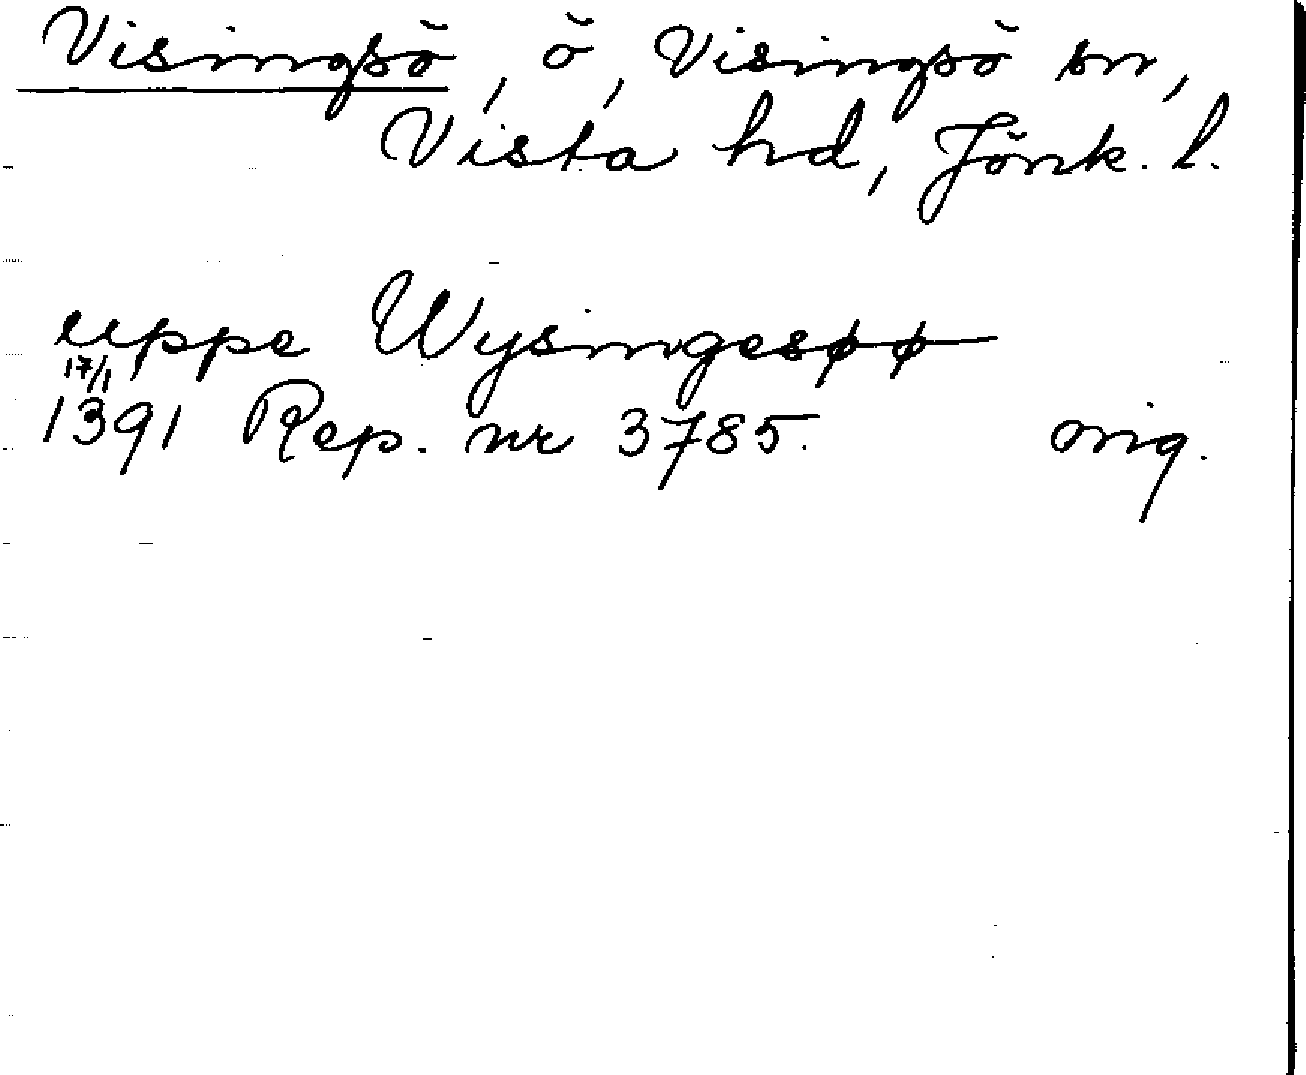 Visingsö, ö, Visingsö sn,
Vista hd, Jönk. l.
uppe Wysingesøø
17/1
1391 Rep. nr 3785. orig.